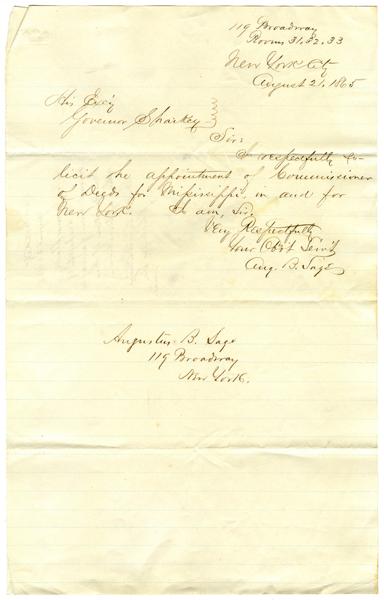 119 Broadway
Rooms 31, 32, 33
New York City
August 21, 1865
His Exc'y
Governor Sharkey
Sir:
I respectfully so-
licit the appointment of Commissioner
of Deeds for Mississippi, in and for
New York. I am, Sir,
Very Respectfully
Your Ob't Serv't
Aug. B. Sage
Augustus B. Sage
119 Broadway
New York.